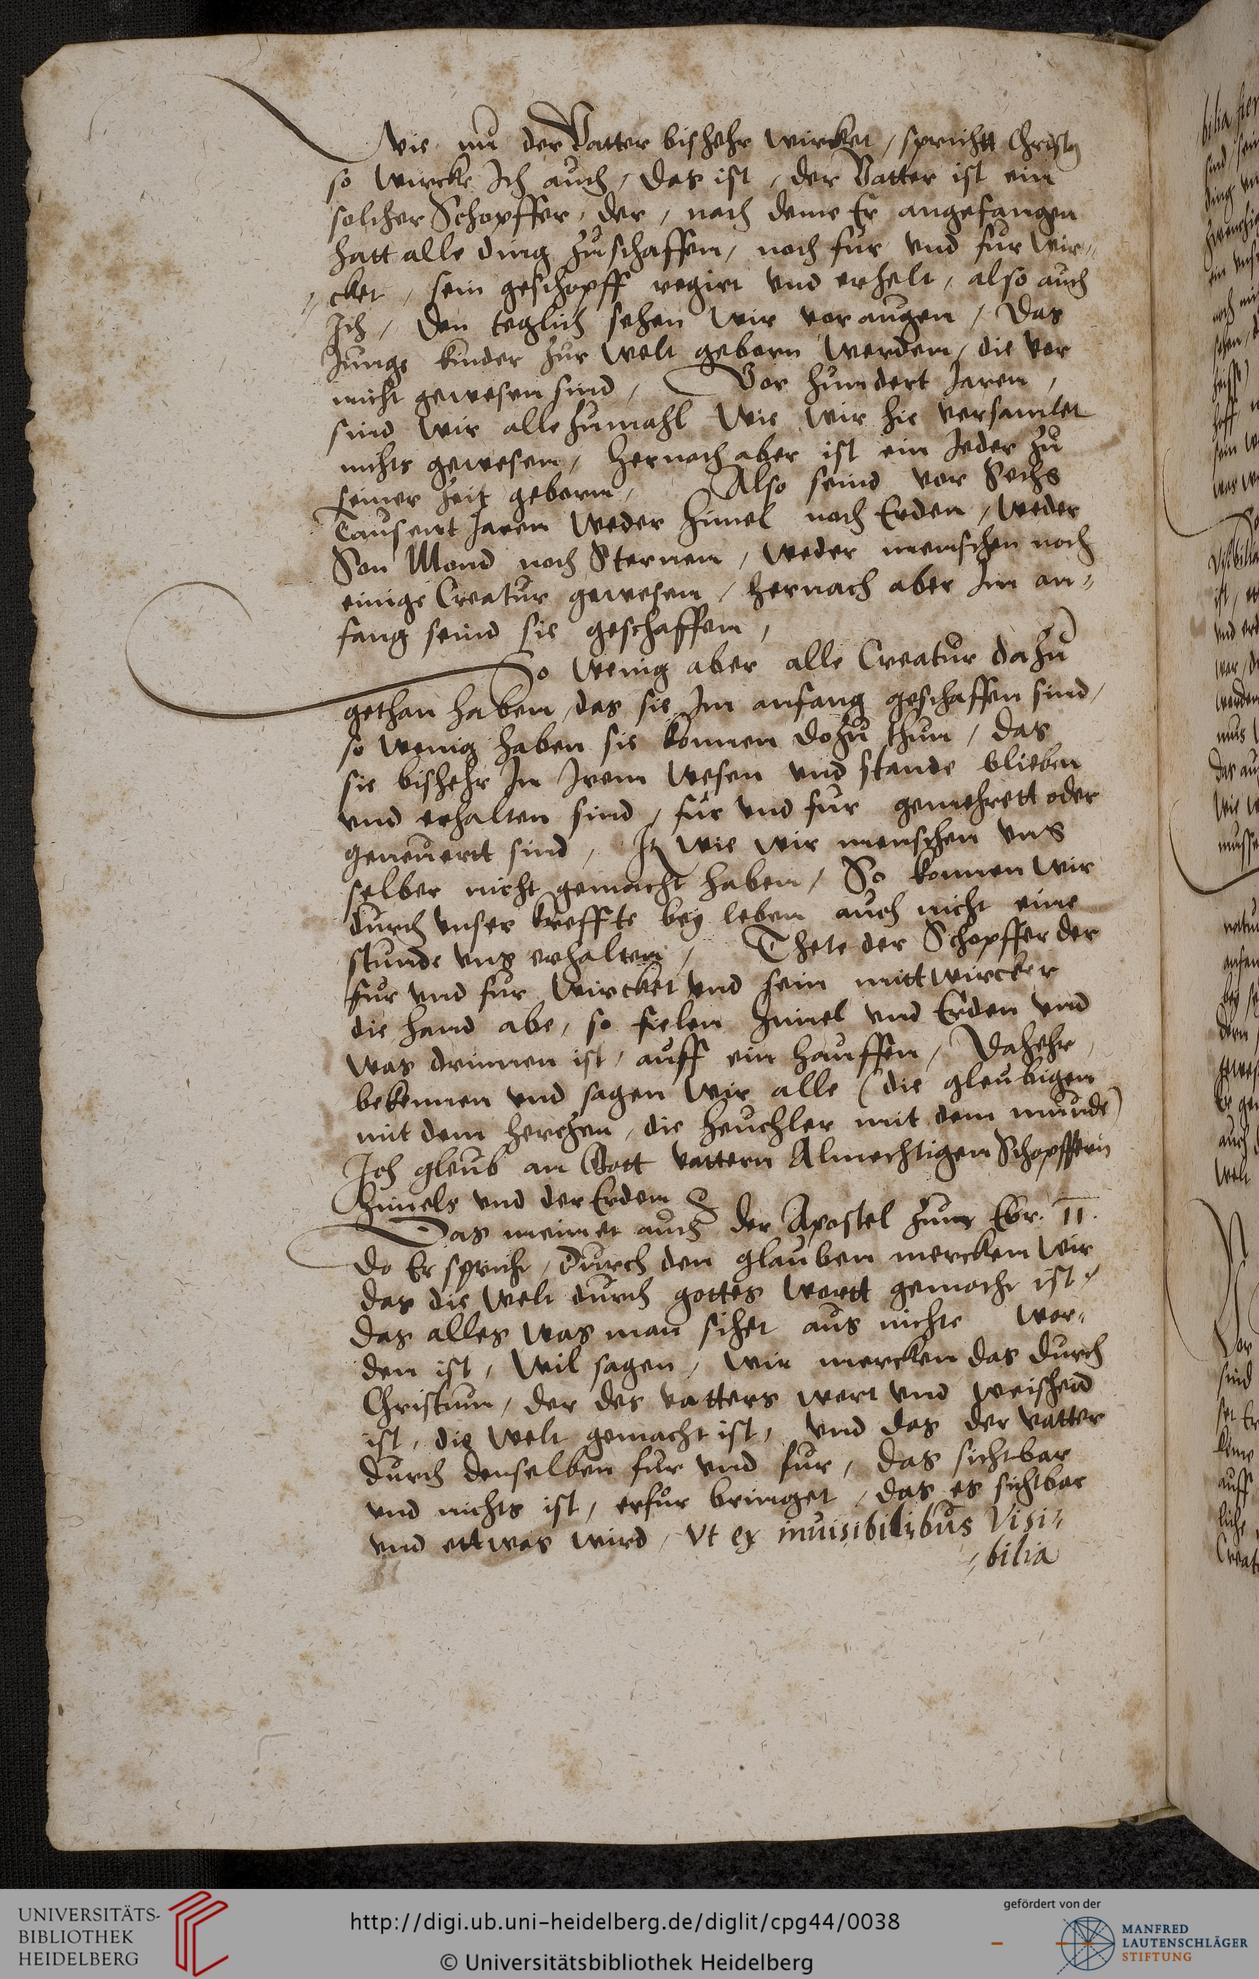 Wie nu der Vatter bishehr wircket, spricht Christus
so wircke Ich auch, Das ist, der Vatter ist ein
solcher Schopffer, der, nach deme Er angefangen
hatt alle ding zuschaffen, noch fur vnd fur wir-
cket, sein geschopff regirt vnd erhelt, also auch
Ich, Den teglich sehen wir vor augen, Das
Junge kinder zur welt geborn werden, die vor
nicht gewesen sind, Vor hundert Jaren,
sind wir alle zumahl wie wir hie versamlet
nichts gewesen, hernach aber ist ein Jeder zu
seiner zeit geborn, Also seind vor Sechs
Tausent Jaren weder himel noch Erden, weder
Son Mond noch Sternen, weder menschen noch
einige Creatur gewesen, hernach aber Im an-
fang seind sie geschaffen,
So wenig aber alle Creatur dazu
gethan haben, das sie Im anfang geschaffen sind,
so wenig haben sie konnen dozu thun, das
sie bishehr In Irem wesen vnd stande blieben
vnd erhalten sind, fur vnd fur gemehrett oder
geneuert sind, Ja wie wir menschen vns
selber nicht gemacht haben, So konnen wir
durch vnser kreffte bey leben auch nicht eine
stunde vns erhalten, Thete der Schopffer der
fur vnd fur wircket vnd sein mittwircker
die hand abe, so fielen himel vnd Erden vnd
was drinnen ist, auff ein hauffen, Dahehr
bekennen vnd sagen wir alle (die gleubigen
mit dem herchen, die heuchler mit dem munde)
Ich gleub an Gott vattern Almechtigen Schopffern
himels vnd der Erden
Das meinet auch der Apostel zun Ebr. 11.
Do Er spricht, Durch den glauben mercken wir
das die welt durch gottes wortt gemacht ist,
das alles was man sihet aus nichte wor-
den ist, Wil sagen, wir mercken das durch
Christum, der des vatters wort vnd weisheid
ist, die welt gemacht ist, vnd das der vatter
durch denselben fur vnd fur, das sichtbar
vnd nichts ist, erfur bringet, das es sichtbar
vnd ettwas wird, Vt ex inuisibilibus Visi-
-bilia
UNIVERSITÄTS-
BIBLIOTHEK
HEIDELBERG
http://digi.ub.uni-heidelberg.de/diglit/cpg44/0038
© Universitätsbibliothek Heidelberg
gefördert von der
MANFRED
LAUTENSCHLÄGER
STIFTUNG